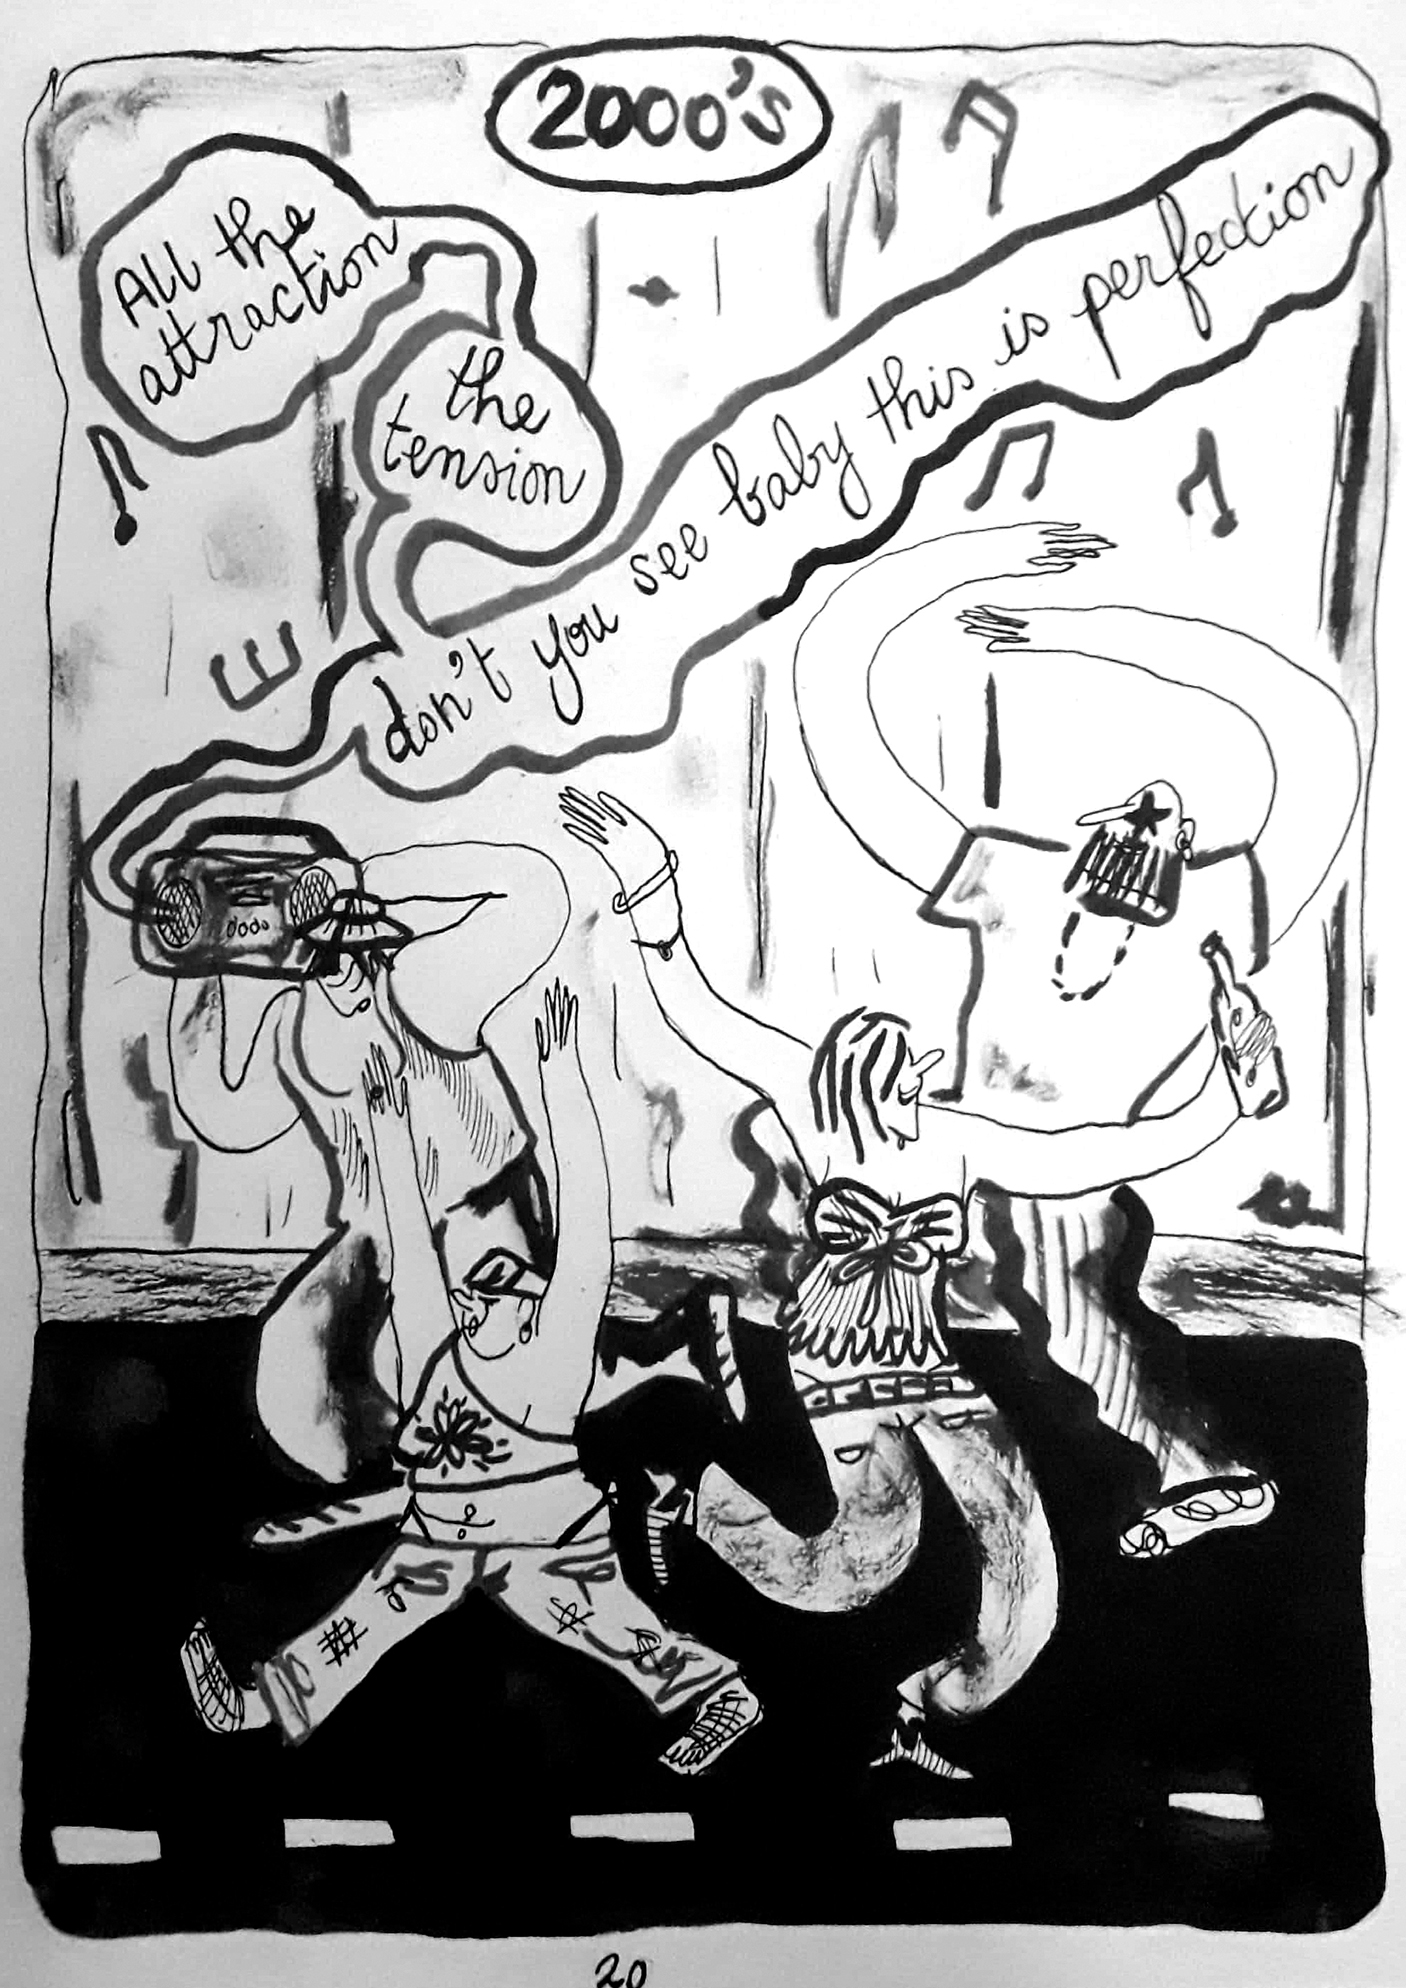 2000's
ALL the
attraction
the
tension
don't you see baby this is perfection
20